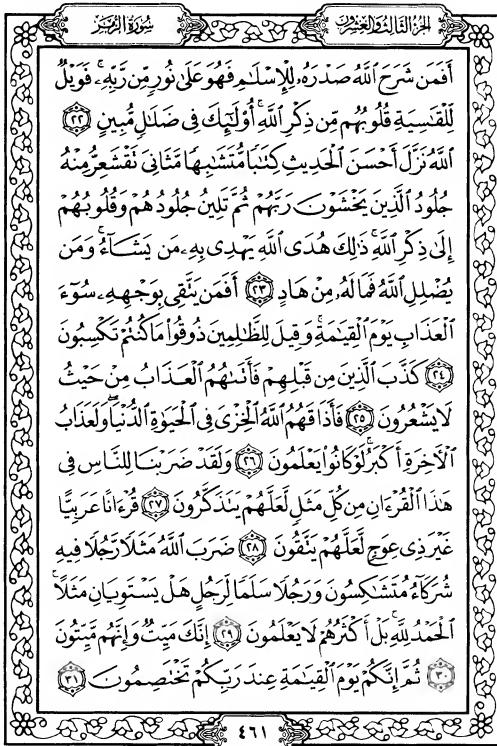 الجزء الثالث والعشرون
سورة الزمر
أَفَمَن شَرَحَ ٱللَّهُ صَدْرَهُۥ لِلْإِسْلَٰمِ فَهُوَ عَلَىٰ نُورٍ مِّن رَّبِّهِۦۚ فَوَيْلٌ
لِّلْقَٰسِيَةِ قُلُوبُهُم مِّن ذِكْرِ ٱللَّهِۚ أُو۟لَٰٓئِكَ فِى ضَلَٰلٍ مُّبِينٍ ٢٢
ٱللَّهُ نَزَّلَ أَحْسَنَ ٱلْحَدِيثِ كِتَٰبًا مُّتَشَٰبِهًا مَّثَانِىَ تَقْشَعِرُّ مِنْهُ
جُلُودُ ٱلَّذِينَ يَخْشَوْنَ رَبَّهُمْ ثُمَّ تَلِينُ جُلُودُهُمْ وَقُلُوبُهُمْ
إِلَىٰ ذِكْرِ ٱللَّهِۚ ذَٰلِكَ هُدَى ٱللَّهِ يَهْدِى بِهِۦ مَن يَشَآءُۚ وَمَن
يُضْلِلِ ٱللَّهُ فَمَا لَهُۥ مِنْ هَادٍ ٢٣ أَفَمَن يَتَّقِى بِوَجْهِهِۦ سُوٓءَ
ٱلْعَذَابِ يَوْمَ ٱلْقِيَٰمَةِۚ وَقِيلَ لِلظَّٰلِمِينَ ذُوقُوا۟ مَا كُنتُمْ تَكْسِبُونَ
٢٤ كَذَّبَ ٱلَّذِينَ مِن قَبْلِهِمْ فَأَتَىٰهُمُ ٱلْعَذَابُ مِنْ حَيْثُ
لَا يَشْعُرُونَ ٢٥ فَأَذَاقَهُمُ ٱللَّهُ ٱلْخِزْىَ فِى ٱلْحَيَوٰةِ ٱلدُّنْيَاۖ وَلَعَذَابُ
ٱلْءَاخِرَةِ أَكْبَرُۚ لَوْ كَانُوا۟ يَعْلَمُونَ ٢٦ وَلَقَدْ ضَرَبْنَا لِلنَّاسِ فِى
هَٰذَا ٱلْقُرْءَانِ مِن كُلِّ مَثَلٍ لَّعَلَّهُمْ يَتَذَكَّرُونَ ٢٧ قُرْءَانًا عَرَبِيًّا
غَيْرَ ذِى عِوَجٍ لَّعَلَّهُمْ يَتَّقُونَ ٢٨ ضَرَبَ ٱللَّهُ مَثَلًا رَّجُلًا فِيهِ
شُرَكَآءُ مُتَشَٰكِسُونَ وَرَجُلًا سَلَمًا لِّرَجُلٍ هَلْ يَسْتَوِيَانِ مَثَلًاۚ
ٱلْحَمْدُ لِلَّهِۚ بَلْ أَكْثَرُهُمْ لَا يَعْلَمُونَ ٢٩ إِنَّكَ مَيِّتٌ وَإِنَّهُم مَّيِّتُونَ
٣٠ ثُمَّ إِنَّكُمْ يَوْمَ ٱلْقِيَٰمَةِ عِندَ رَبِّكُمْ تَخْتَصِمُونَ ٣١
٤٦١